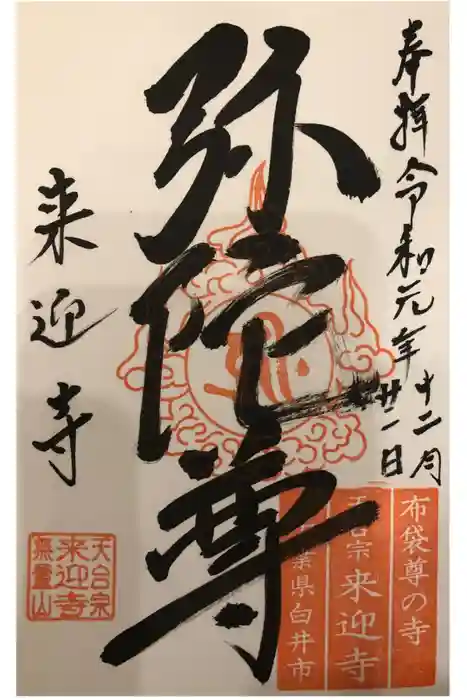 奉拝令和元年十二月
廿一日
弥陀尊
来迎寺
布袋尊の寺
天台宗 来迎寺
千葉県白井市
天台宗
来迎寺
無量山